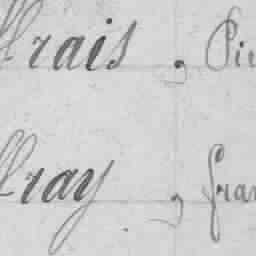 frais , Pie
fray , fran